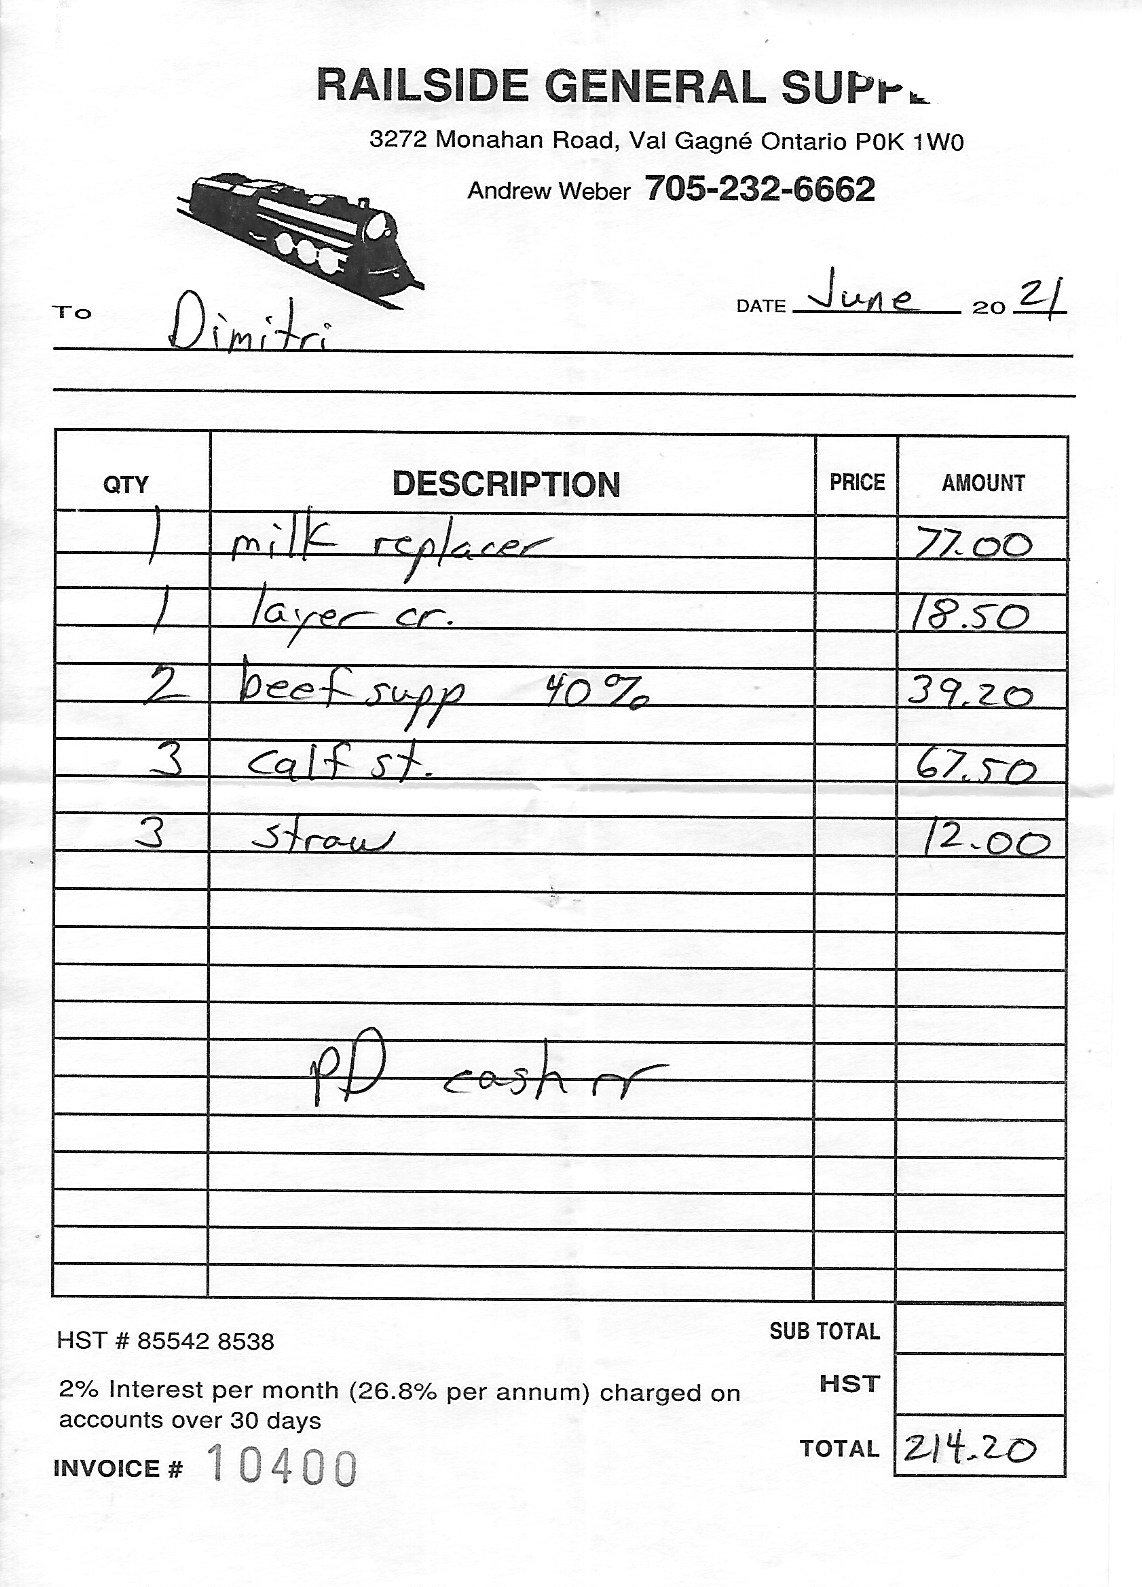 RAILSIDE GENERAL SUPPL
3272 Monahan Road, Val Gagné Ontario P0K 1W0
Andrew Weber 705-232-6662
TO Dimitri DATE June 20 21
QTY DESCRIPTION PRICE AMOUNT
1 milk replacer 77.00
1 layer cr. 18.50
2 beef supp 40% 39.20
3 calf st. 67.50
3 straw 12.00
PD cash
SUB TOTAL
HST # 85542 8538
HST
2% Interest per month (26.8% per annum) charged on
accounts over 30 days
TOTAL 214.20
INVOICE # 10400